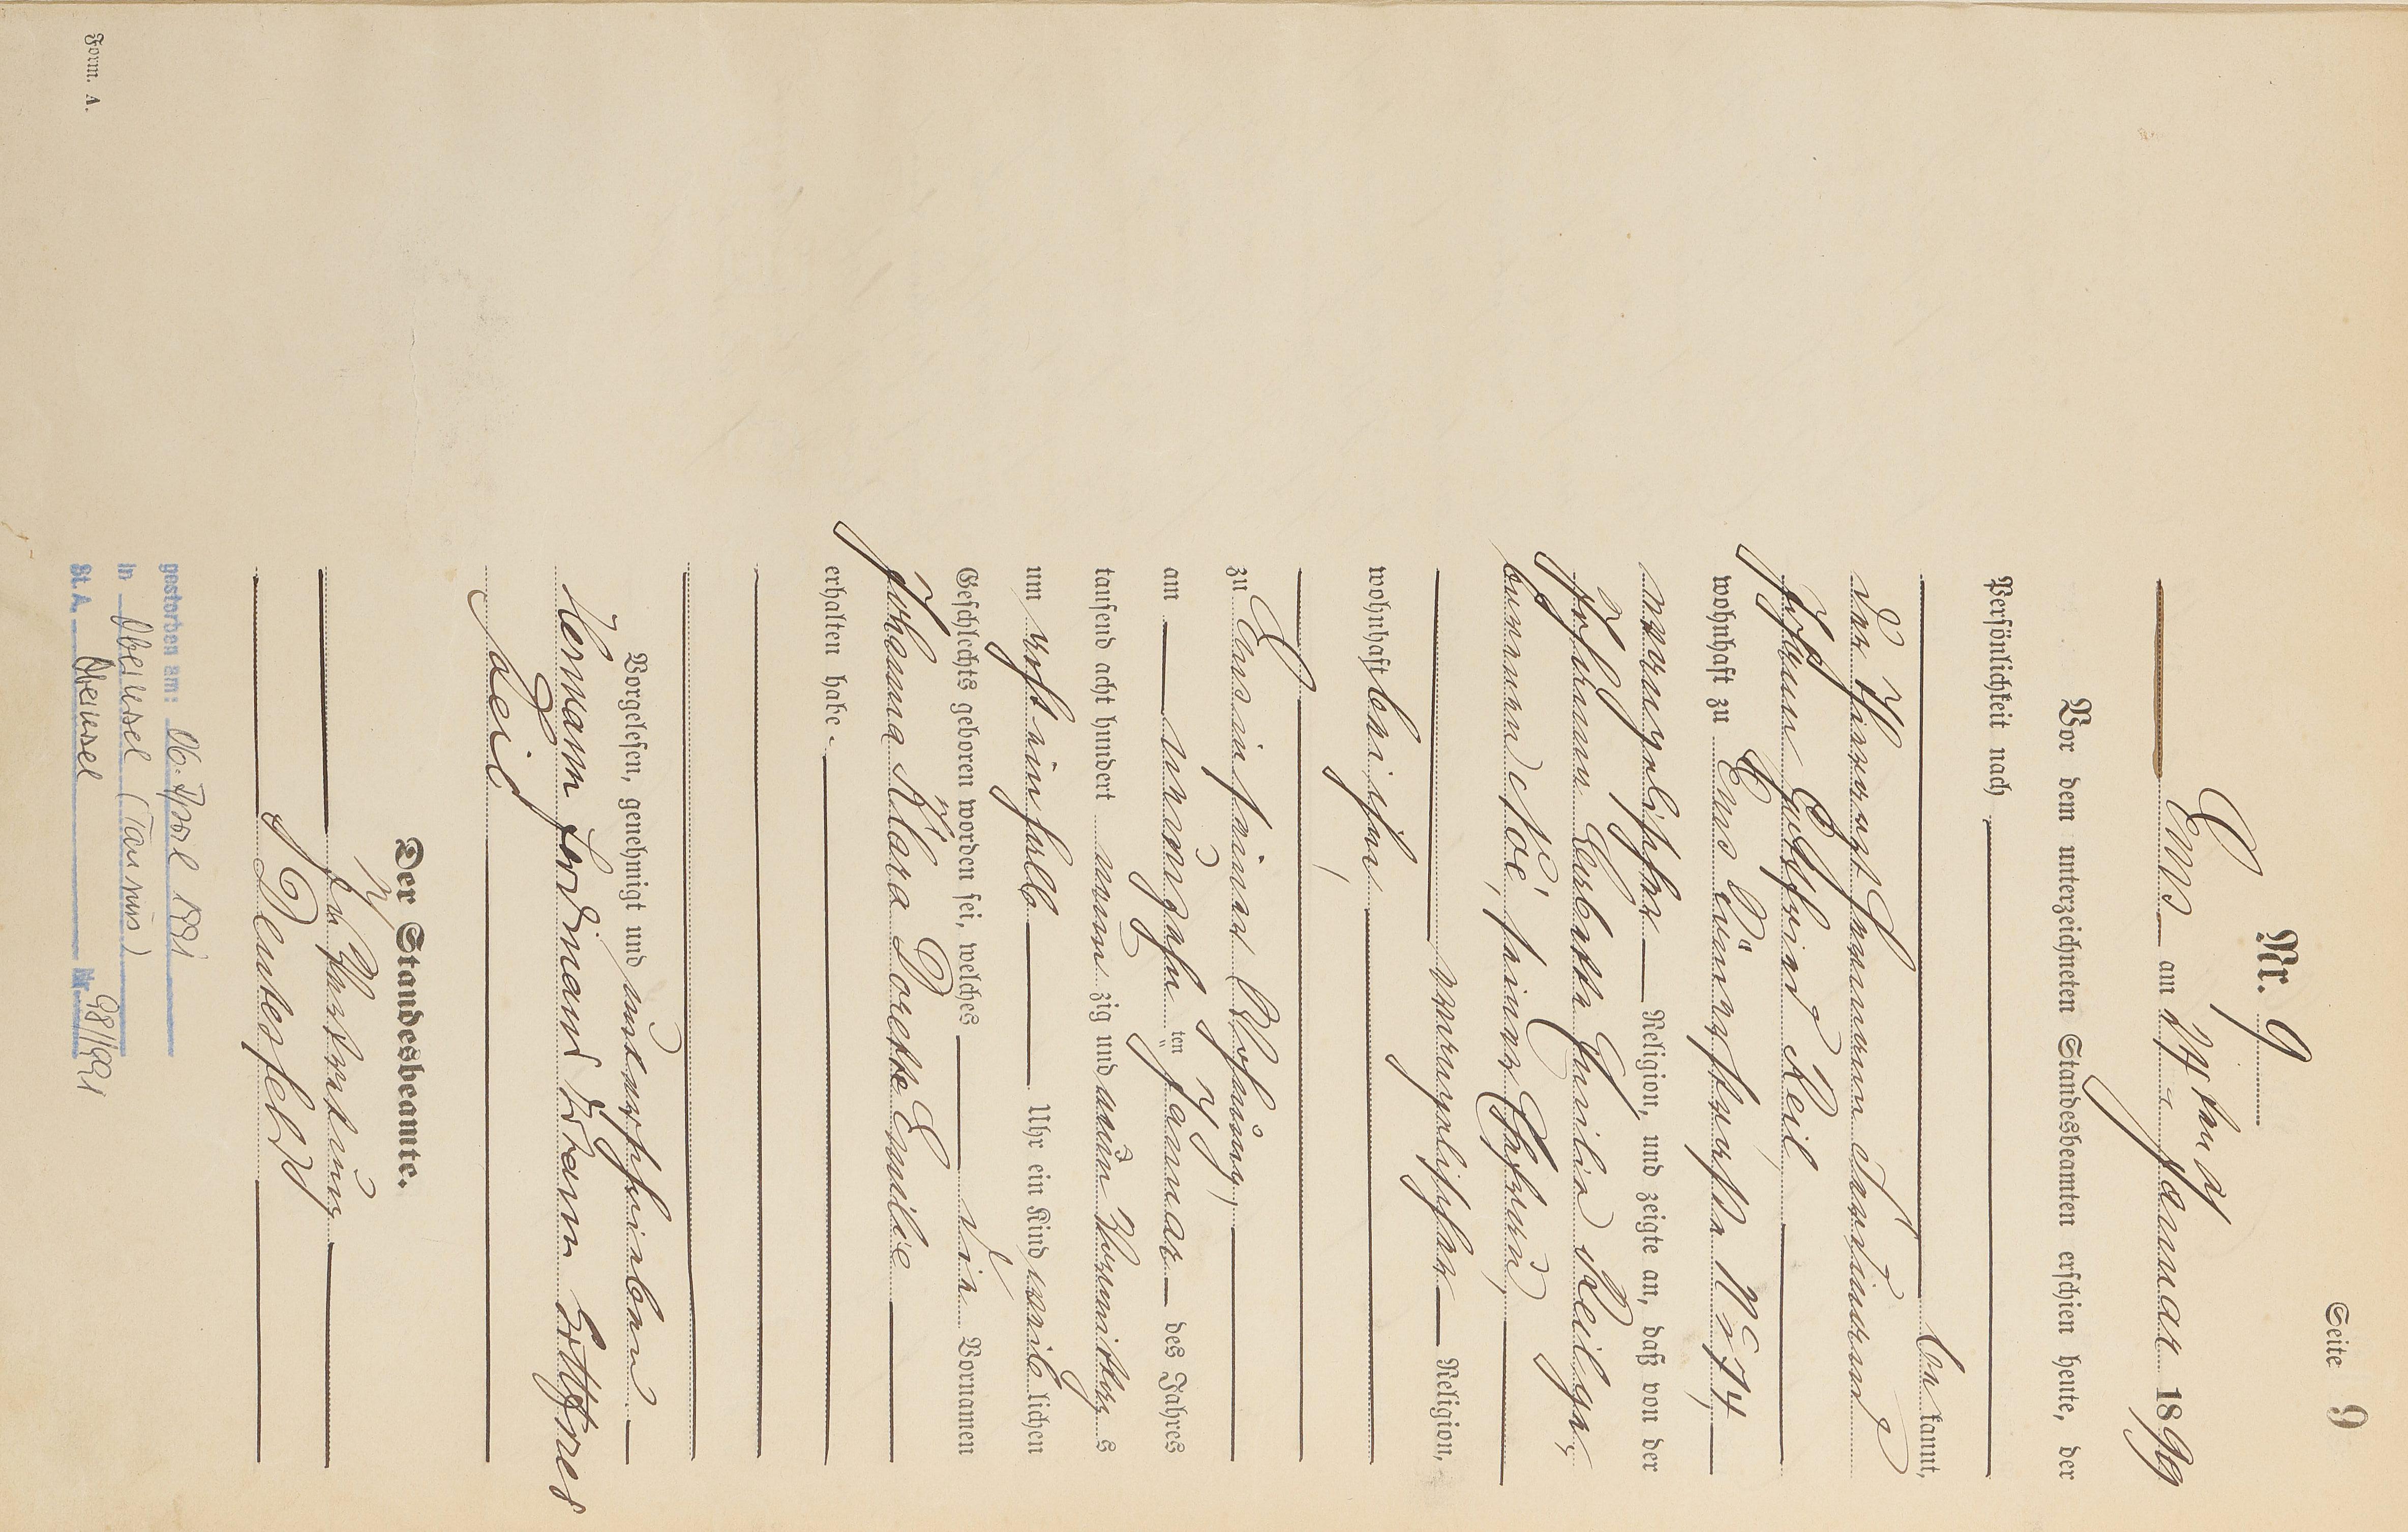 Seite 9
Nr. 9
Ems am 24ten Januar 1899
Vor dem unterzeichneten Standesbeamten erschien heute, der
Persönlichkeit nach
bekannt,
der Hermann Ferdinand
Johann Gottfried Keil,
wohnhaft zu Ems, No 74,
evangelischer Religion, und zeigte an, daß von der
Johanna Emilie Keil ge-
borenen Noé, seiner Ehefrau,
evangelischer Religion,
wohnhaft bei ihm,
zu Ems in seiner Wohnung,
am neunzehn ten Januar des Jahres
tausend acht hundert neun zig und neun Vormittags
um Uhr ein Kind weiblichen
Geschlechts geboren worden sei, welches die Vornamen
Johanna Klara Dorette Emilie
erhalten habe.
Vorgelesen, genehmigt und unterschrieben
Hermann Ferdinand Johann Gottfried
Keil
Der Standesbeamte.
In Vertretung
gestorben am: 06. April 1991
in Oberursel (Taunus)
St. A. Oberursel Nr. 98/1991
Form. A.